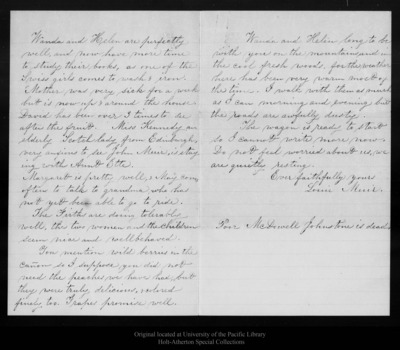 Wanda and Helen are perfectly
well, and now have more time
to study their books, as one of the
Swiss girls comes to wash & iron.
Mother was very sick for a week
but is now up & around the house
David has been over 3 times to see
after the fruit. Miss Kennedy, an
elderly Scotch lady from Edinburgh,
very anxious to see John Muir, is stay
ing with Aunt Etta.
Margaret is pretty well, & May comes
often to talk to grandma who has
not yet been able to go to ride.
The Firths are doing tolerably
well, the two women and the children
seem nice and well behaved.
You mention wild berries in the
cañon so I suppose you did not
need the peaches we have had, but
they were truly delicious, colored
finely, too. Grapes promise well.
Wanda and Helen long to be
with you on the mountains, and in
the cool fresh woods, for the weather
here has been very warm most of
this time. I walk with them as much
as I can morning and evening but
the roads are awfully dusty.
The wagon is ready to start
so I cannot write more now.
Do not feel worried about us, we
are quietly resting.
Ever faithfully yours
Louie Muir.
Poor McDowell Johnstone is dead.
Original located at University of the Pacific Library
Holt-Atherton Special Collections